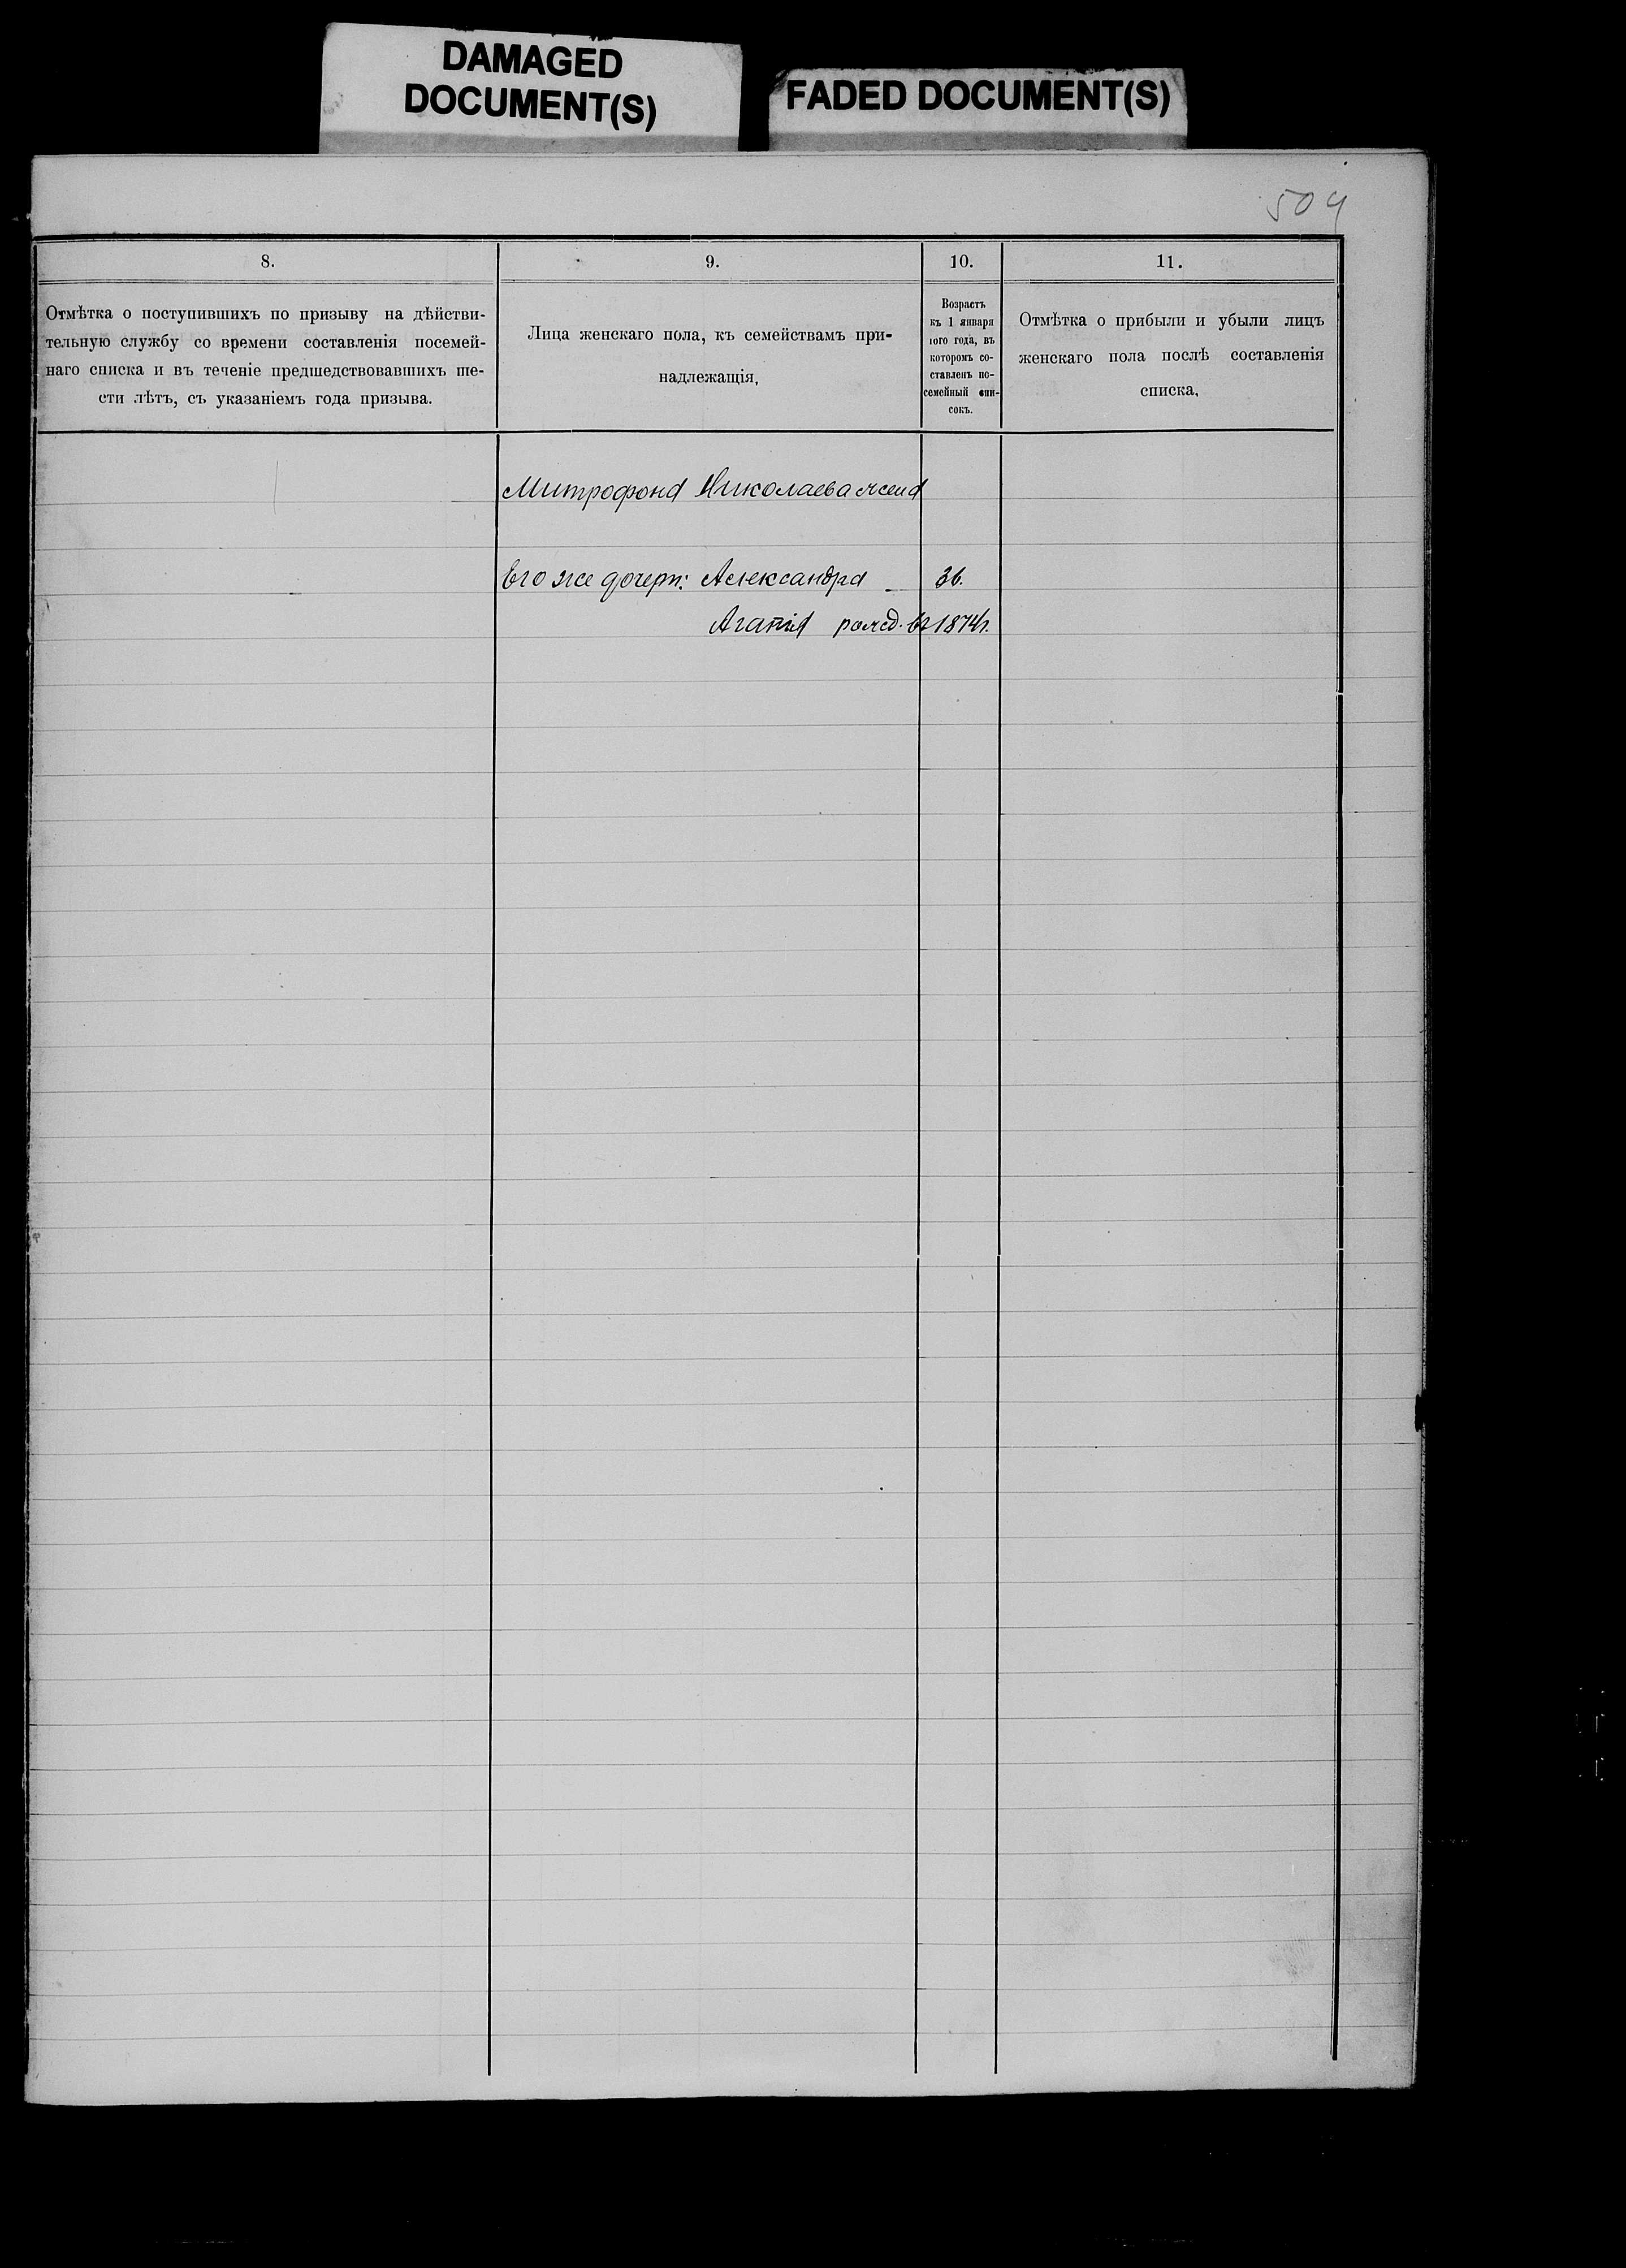 DAMAGED
DOCUMENT(S)
FADED DOCUMENT(S)
504
8.
Отмѣтка о поступившихъ по призыву на дѣйстви-
тельную службу со времени составленія посемей-
наго списка и въ теченіе предшедствовавшихъ ше-
сти лѣтъ, съ указаніемъ года призыва.
9.
Лица женскаго пола, къ семействамъ при-
надлежащія,
10.
Возрастъ
къ 1 января
того года, въ
которомъ со-
ставленъ по-
семейный спи-
сокъ.
11.
Отмѣтка о прибыли и убыли лицъ
женскаго пола послѣ составленія
списка,
Митрофона Николаева жена
Его же дочери: Александра 36.
Агапія рожд. въ 1874 г.